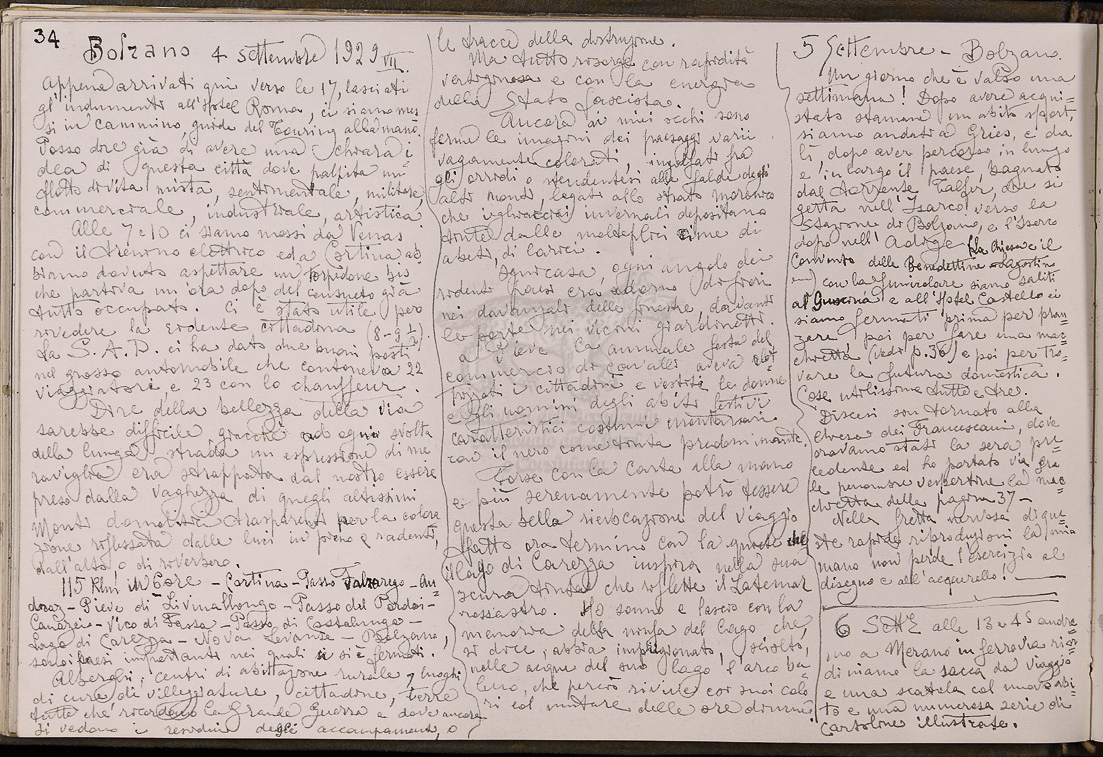 34
Bolzano 4 settembre 1929 VII.
Appena arrivati qui verso le 17, lasciati
gl'indumenti all'Hotel Roma, ci siamo mes
si in cammino, guida del Touring alla mano.
Posso dire già di avere una chiara i
dea di questa città dove palpita un
flutto di vita mista, sentimentale, militare
commerciale, industriale, artistica
Alle 7 e 10 ci siamo mossi da Venas
con il trenino elettrico ed a Cortina ab
biamo dovuto aspettare un torpedone bis
che partiva un'ora dopo del consueto già
tutto occupato. Ci è stato utile per
rivedere la ridente cittadina (8-9½)
La S.A.D. ci ha dato due buoni posti
nel grosso automobile che conteneva 22
viaggiatori e 23 con lo chauffeur.
Dire della bellezza della via
sarebbe difficile giacché ad ogni svolta
della lunga strada un'espressione di me
raviglia era strappata dal nostro essere
preso dalla vaghezza di quegli altissimi
Monti dolomitici trasparenti per la colora
zione riflessata dalle luci in pieno e radenti,
dall'alto o di rovescio.
115 Klmi in 6 ore - Cortina - Passo Falzarego - An
draz - Pieve di Livinallongo - Passo del Pordoi -
Canazei - Vico di Fassa - Passo di Costalunga -
Lago di Carezza - Nova Levante - Bolzano,
sono i paesi importanti nei quali ci si è fermati.
Alberghi, centri di abitazione rurale, luoghi
di cura, di villeggiature, cittadine, terre
tutte che ricordano la Grande Guerra e dove ancora
si vedono i residui degli accampamenti, o
le tracce della distruzione.
Ma tutto risorge con rapidità
vertiginosa e con la energia
dello Stato fascista.
Ancora ai miei occhi sono
ferme le imagini dei paesaggi varii
vagamente colorati, ingolfati fra
gli orridi o stendentisi alle falde degli
alti monti, legati allo strato morenico
che i ghiacciai invernali depositano
tinte dalle molteplici cime di
abeti, di larici.
Ogni casa ogni angolo dei
ridenti paesi era adorno di fiori
nei davanzali delle finestre, davanti
le porte nei vicoli giardinetti.
A Pieve la annuale festa del
commercio dei cavalli aveva at
tirati i cittadini e vestite le donne
e gli uomini degli abiti festivi
caratteristici costumi montanari
con il nero come tinta predominante.
Forse con la carta alla mano
e più serenamente potrò tessere
questa bella rievocazione del viaggio
fatto ora termino con la quiete che
il lago di Carezza inspira nella sua
scura tinta che riflette il Latemar
rossastro. Ho sonno e lascio con la
memoria della ninfa del lago che,
si dice, abbia impregionato, sciolto,
nelle acque del suo lago l'arco ba
leno, che perciò rivive coi suoi colo
ri col mutare delle ore diurne.
5 Settembre - Bolzano.
Un giorno che è valso una
settimana! Dopo avere acqui=
stato stamane un abito sport,
siamo andati a Gries, e da
lì, dopo aver percorso in lungo
e in largo il paese, bagnato
dal torrente Talfer, che si
getta nell'Isarco verso la
Stazione di Bolzano, e l'Isarco
dopo nell'Adige (la chiesa e il
Convento delle Benedettine
con la funicolare siamo saliti
al Guncina e all'Hotel Castello ci
siamo fermati prima per pran=
zare, poi per fare una mac=
chietta (vedi p.36) e poi per tro=
vare la futura domestica.
Cose utilissime tutte e tre.
Discesi son tornato alla
chiesa dei Francescani, dove
eravamo stati la sera pre
cedente ed ho portato via fra
le penombre vespertine la mac
chietta della pagina 37 -
Nella fretta nervosa di que=
ste rapide riproduzioni la mia
mano non perde l'esercizio al
disegno e all'acquerello!
6 Sett. alle 13 e 45 andre=
mo a Merano in ferrovia rior=
diniamo la sacca da viaggio
e una scatola col nuovo abi=
to e una numerosa serie di
cartoline illustrate.